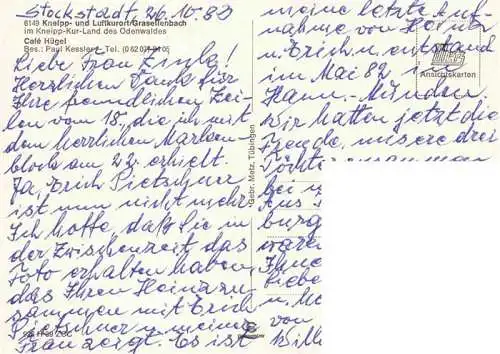 Stockstadt, 26.10.83
6149 Kneipp- und Luftkurort Grasellenbach
im Kneipp-Kur-Land des Odenwaldes
Café Hügel
Bes.: Paul Kessler, Tel. (0 62 07)
Liebe Frau
Herzlichen Dank für
Ihre freundlichen Zei-
len vom 18., die ich mit
dem herrlichen Marken-
block am 22. erhielt.
Ja, Erich Pietschner
ist nun nicht mehr.
Ich hoffe, daß Sie in
der Zwischenzeit das
Foto erhalten haben,
das Ihren Heinz zu-
sammen mit Erich
Pietschner u. meine
Frau zeigt. Es ist
Gebr. Metz, Tübingen
meine letzte Auf-
nahme von Heinz
u. Erich u. entstand
im Mai 82 in
Hann.-Münden.
Wir hatten jetzt die
Freude, unsere drei
Töchter
bei
Aus
burg
waren
Ihnen
liebe
u. M
von
Willi
METZ
Ansichtskarten